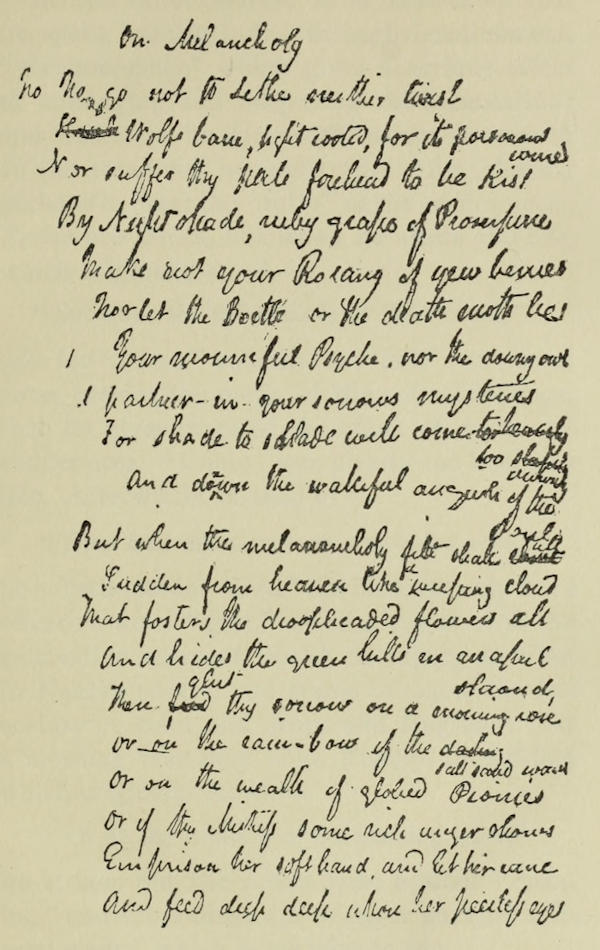 On Melancholy
No No, go not to Lethe neither twist
Wolfs bane, tight rooted, for its poisonous
wine
Nor suffer thy pale forehead to be kist
By Nightshade, ruby grape of Proserpine
Make not your Rosary of yew berries
Nor let the Beetle or the death moth be
Your mournful Psyche, nor the downy owl
A partner in your sorrows mysteries
For shade to shade will come too heavily
too sleepily
And down the wakeful anguish of the
drown
soul
But when the melancholy fit shall
fall
Sudden from heaven like a weeping cloud
That fosters the droopheaded flowers all
And hides the green hills in an april
shroud,
glut
Then feed thy sorrow on a morning rose
or on the rain-bow of the dashing
salt sand wave
Or on the wealth of globed Pionies
Or if thy Mistress some rich anger shows
Emprison her soft hand, and let her rave
And feed deep deep upon her peerless eyes